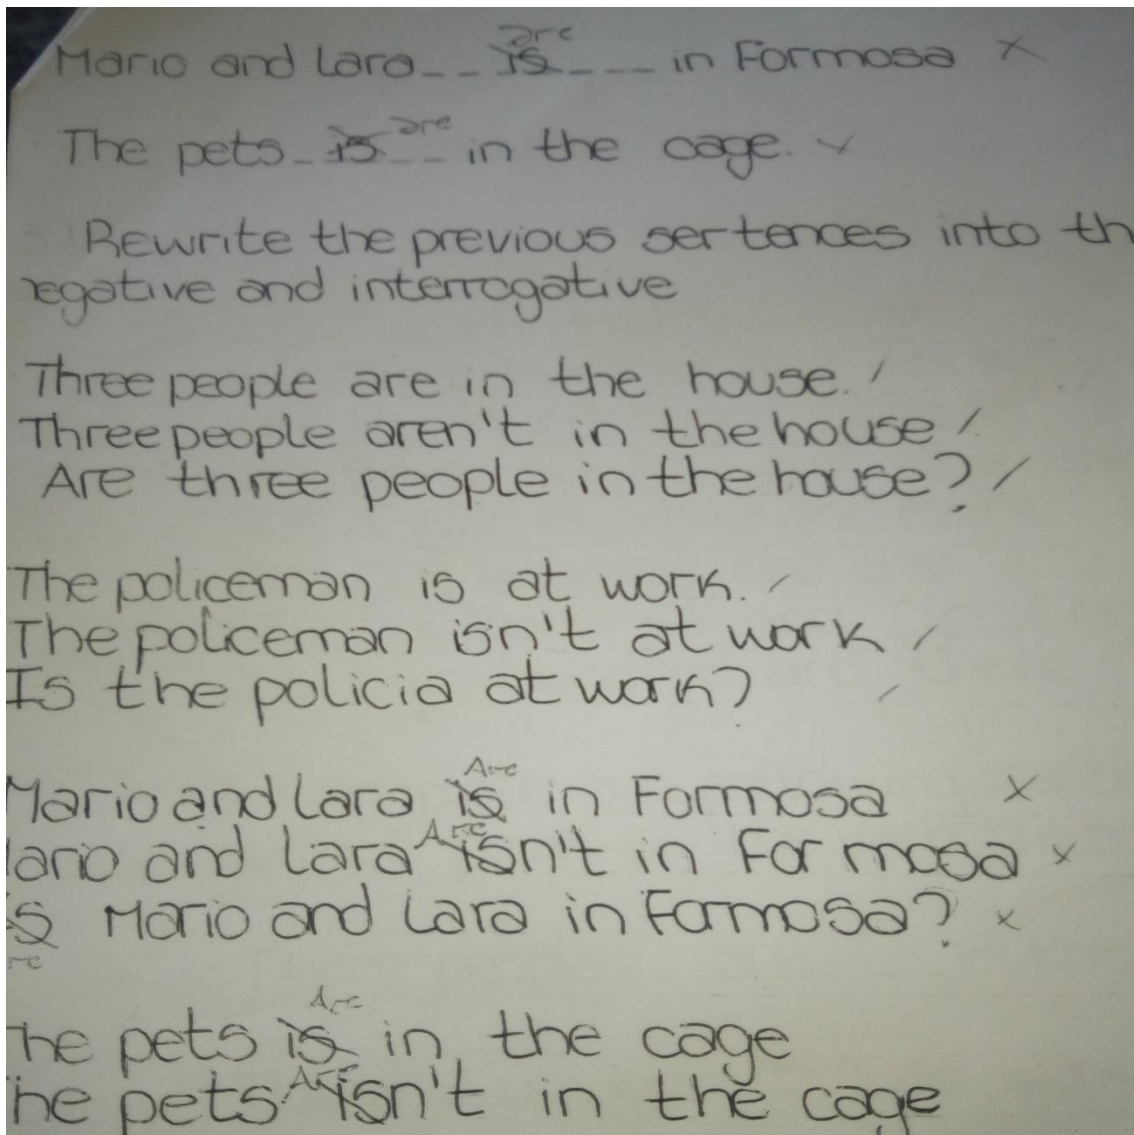 are
Mario and Lara__is___in Formosa X
are
The pets_is__in the cage. ✓
Rewrite the previous sertences into th
egative and interrogative
Three people are in the house. /
Three people aren't in the house /
Are three people in the house? /
The policeman is at work. /
The policeman isn't at work /
Is the policia at work? /
Are
Mario and Lara is in Formosa X
Are
ario and Lara isn't in Formosa x
s Mario and Lara in Formosa? x
re
Are
he pets is in the cage
Are
he pets isn't in the cage